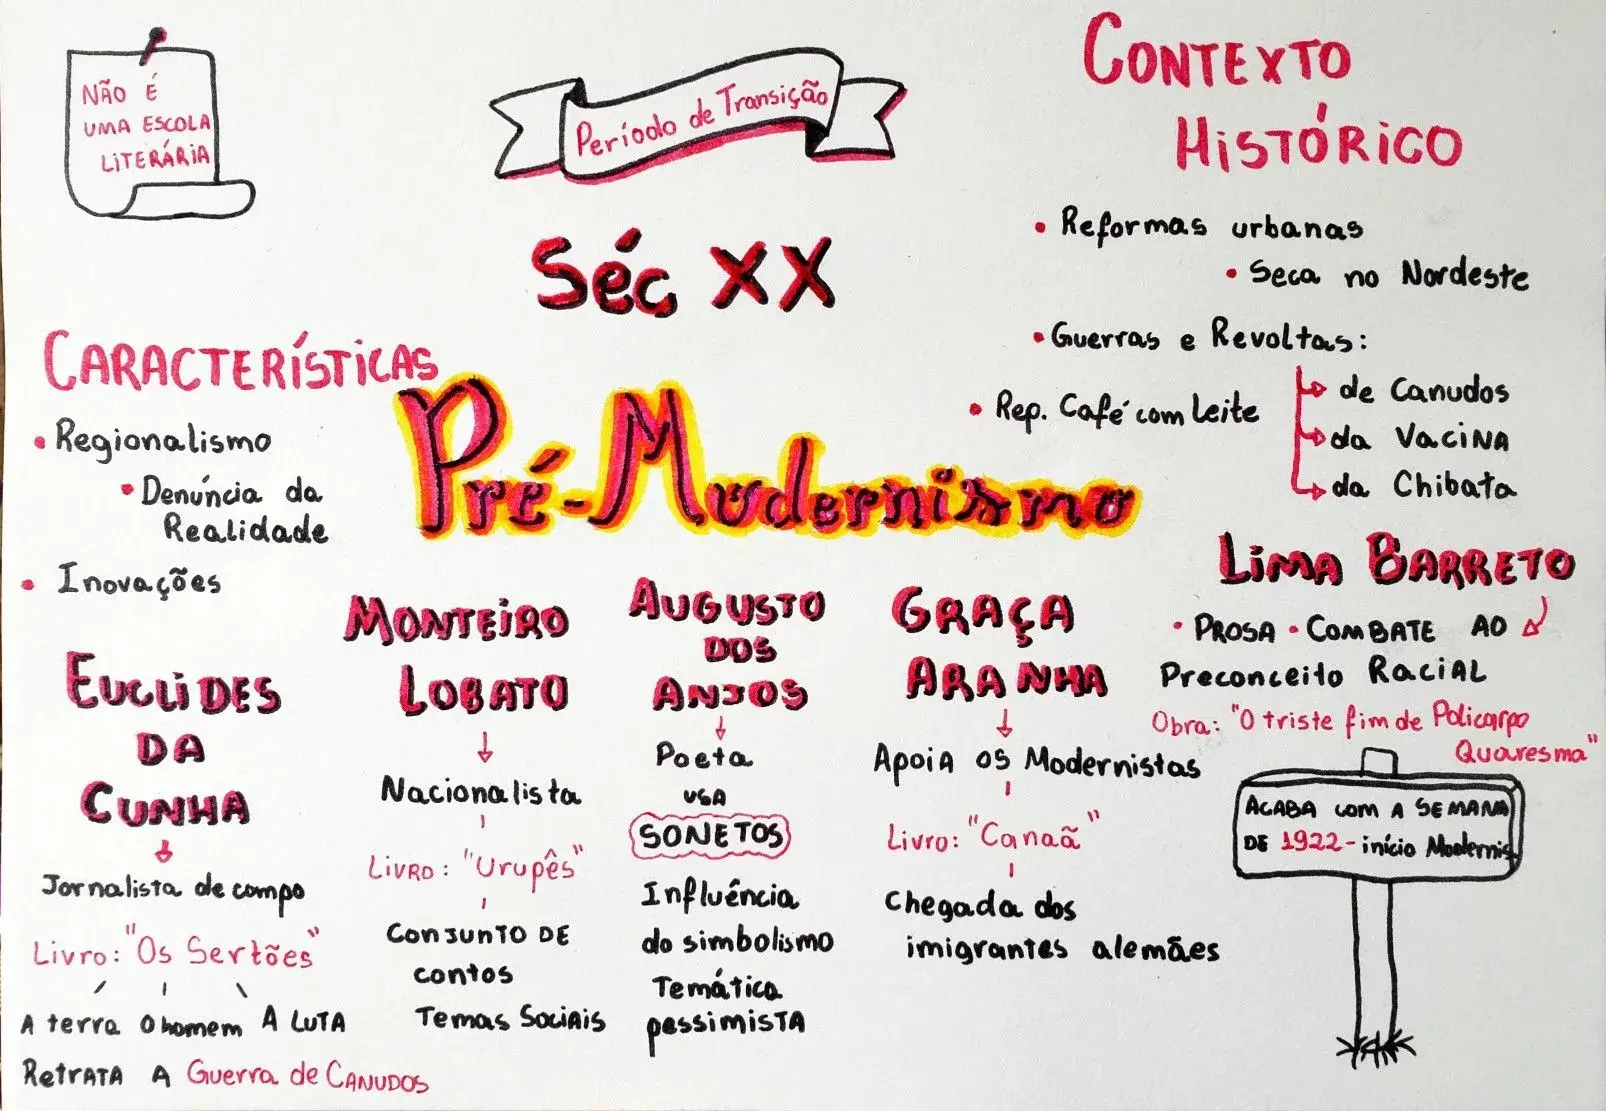 NÃO É
UMA ESCOLA
LITERÁRIA
Período de Transição
Séc XX
Pré-Modernismo
CONTEXTO
HISTÓRICO
• Reformas urbanas
• Seca no Nordeste
• Guerras e Revoltas:
de Canudos
da VaciNA
da Chibata
• Rep. Café com Leite
CARACTERÍSTICAS
• Regionalismo
• Denúncia da
Realidade
• Inovações
EUCLIDES
DA
CUNHA
Jornalista de campo
Livro: "Os Sertões"
A terra O homem A LUTA
RetrATA A Guerra de CANUDOS
MONTEIRO
LOBATO
Nacionalista
LIVRO: "Urupês"
CONJUNTO DE
contos
Temas SociAis
AUGUSTO
DOS
ANJOS
Poeta
USA
SONETOS
Influência
do simbolismo
Temática
pessimistA
GRAÇA
ARANHA
ApoiA os Modernistas
Livro: "Canaã"
Chegada dos
imigrantes alemães
LIMA BARRETO
• PROSA • COMBATE AO
Preconceito RaciAL
Obra: "O triste fim de Policarpo
Quaresma"
ACABA com A SEMANA
DE 1922 - início Modernis